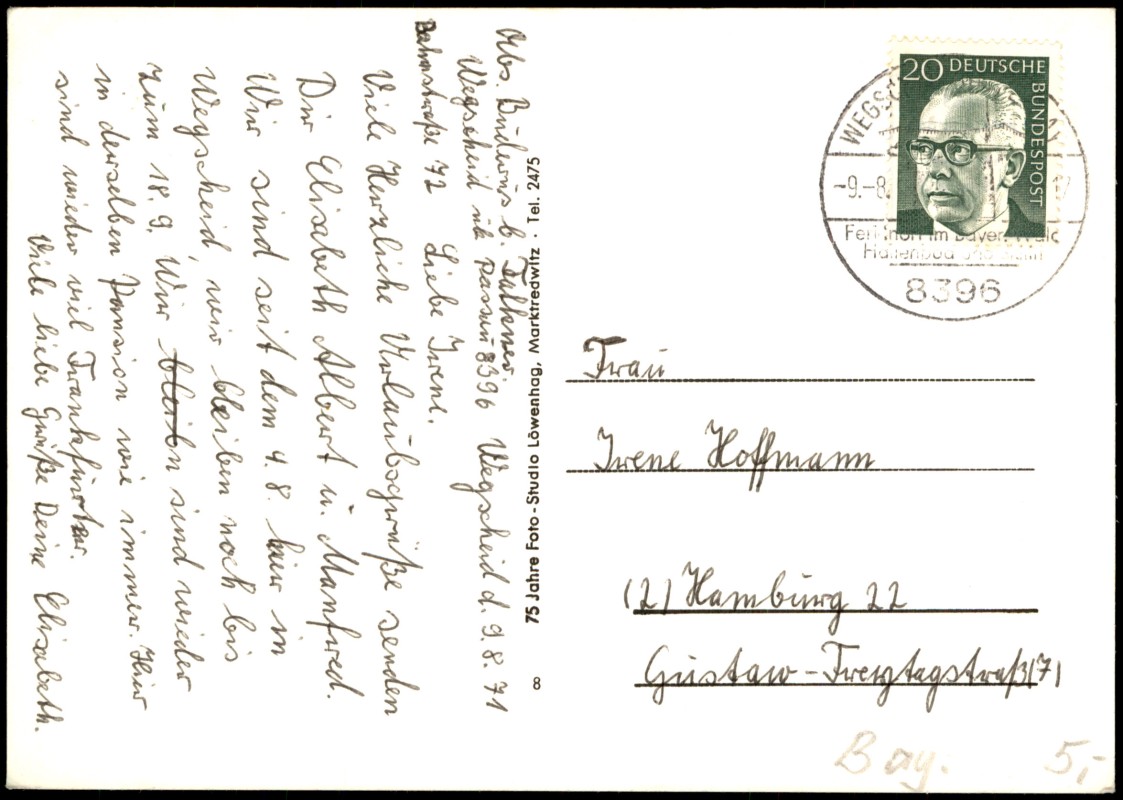 Abs. Buderus b. Falkner.
Wegscheid üb Passau 8396
Bahnstraße 72
Wegscheid d. 9. 8. 71
Liebe Irene.
Viele Herzliche Urlaubsgrüße senden
Dir Elisabeth Albert u. Manfred.
Wir sind seit dem 4. 8. hier in
Wegscheid, wir bleiben noch bis
zum 18. 9. Wir bleibn sind wieder
in derselben Pansion wie immer. Hier
sind wieder viel Frankfurter.
Viele liebe Grüße Deine Elisabeth.
75 Jahre Foto-Studio Löwenhag, Marktredwitz · Tel. 2475
8
20 DEUTSCHE
BUNDESPOST
-9.-8.
8396
Frau
Irene Hoffmann
(2) Hamburg 22
Gustaw-Freytagstraß(7)
Bay. 5,-